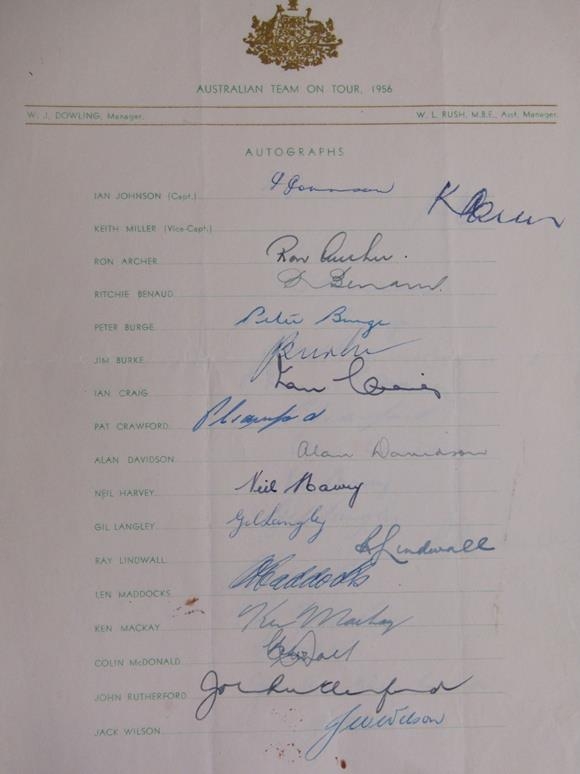 AUSTRALIAN TEAM ON TOUR, 1956
W. J. DOWLING, Manager. W. L. RUSH, M.B.E., Asst. Manager.
AUTOGRAPHS
IAN JOHNSON (Capt.) I Johnson
KEITH MILLER (Vice-Capt.)
RON ARCHER Ron Archer.
RITCHIE BENAUD R Benaud.
PETER BURGE Peter Burge
JIM BURKE J Burke
IAN CRAIG Ian Craig
PAT CRAWFORD P Crawford
ALAN DAVIDSON Alan Davidson
NEIL HARVEY Neil Harvey
GIL LANGLEY Gil Langley
RAY LINDWALL R Lindwall
LEN MADDOCKS Maddocks
KEN MACKAY Ken Mackay
COLIN McDONALD
JOHN RUTHERFORD John Rutherford
JACK WILSON J W Wilson